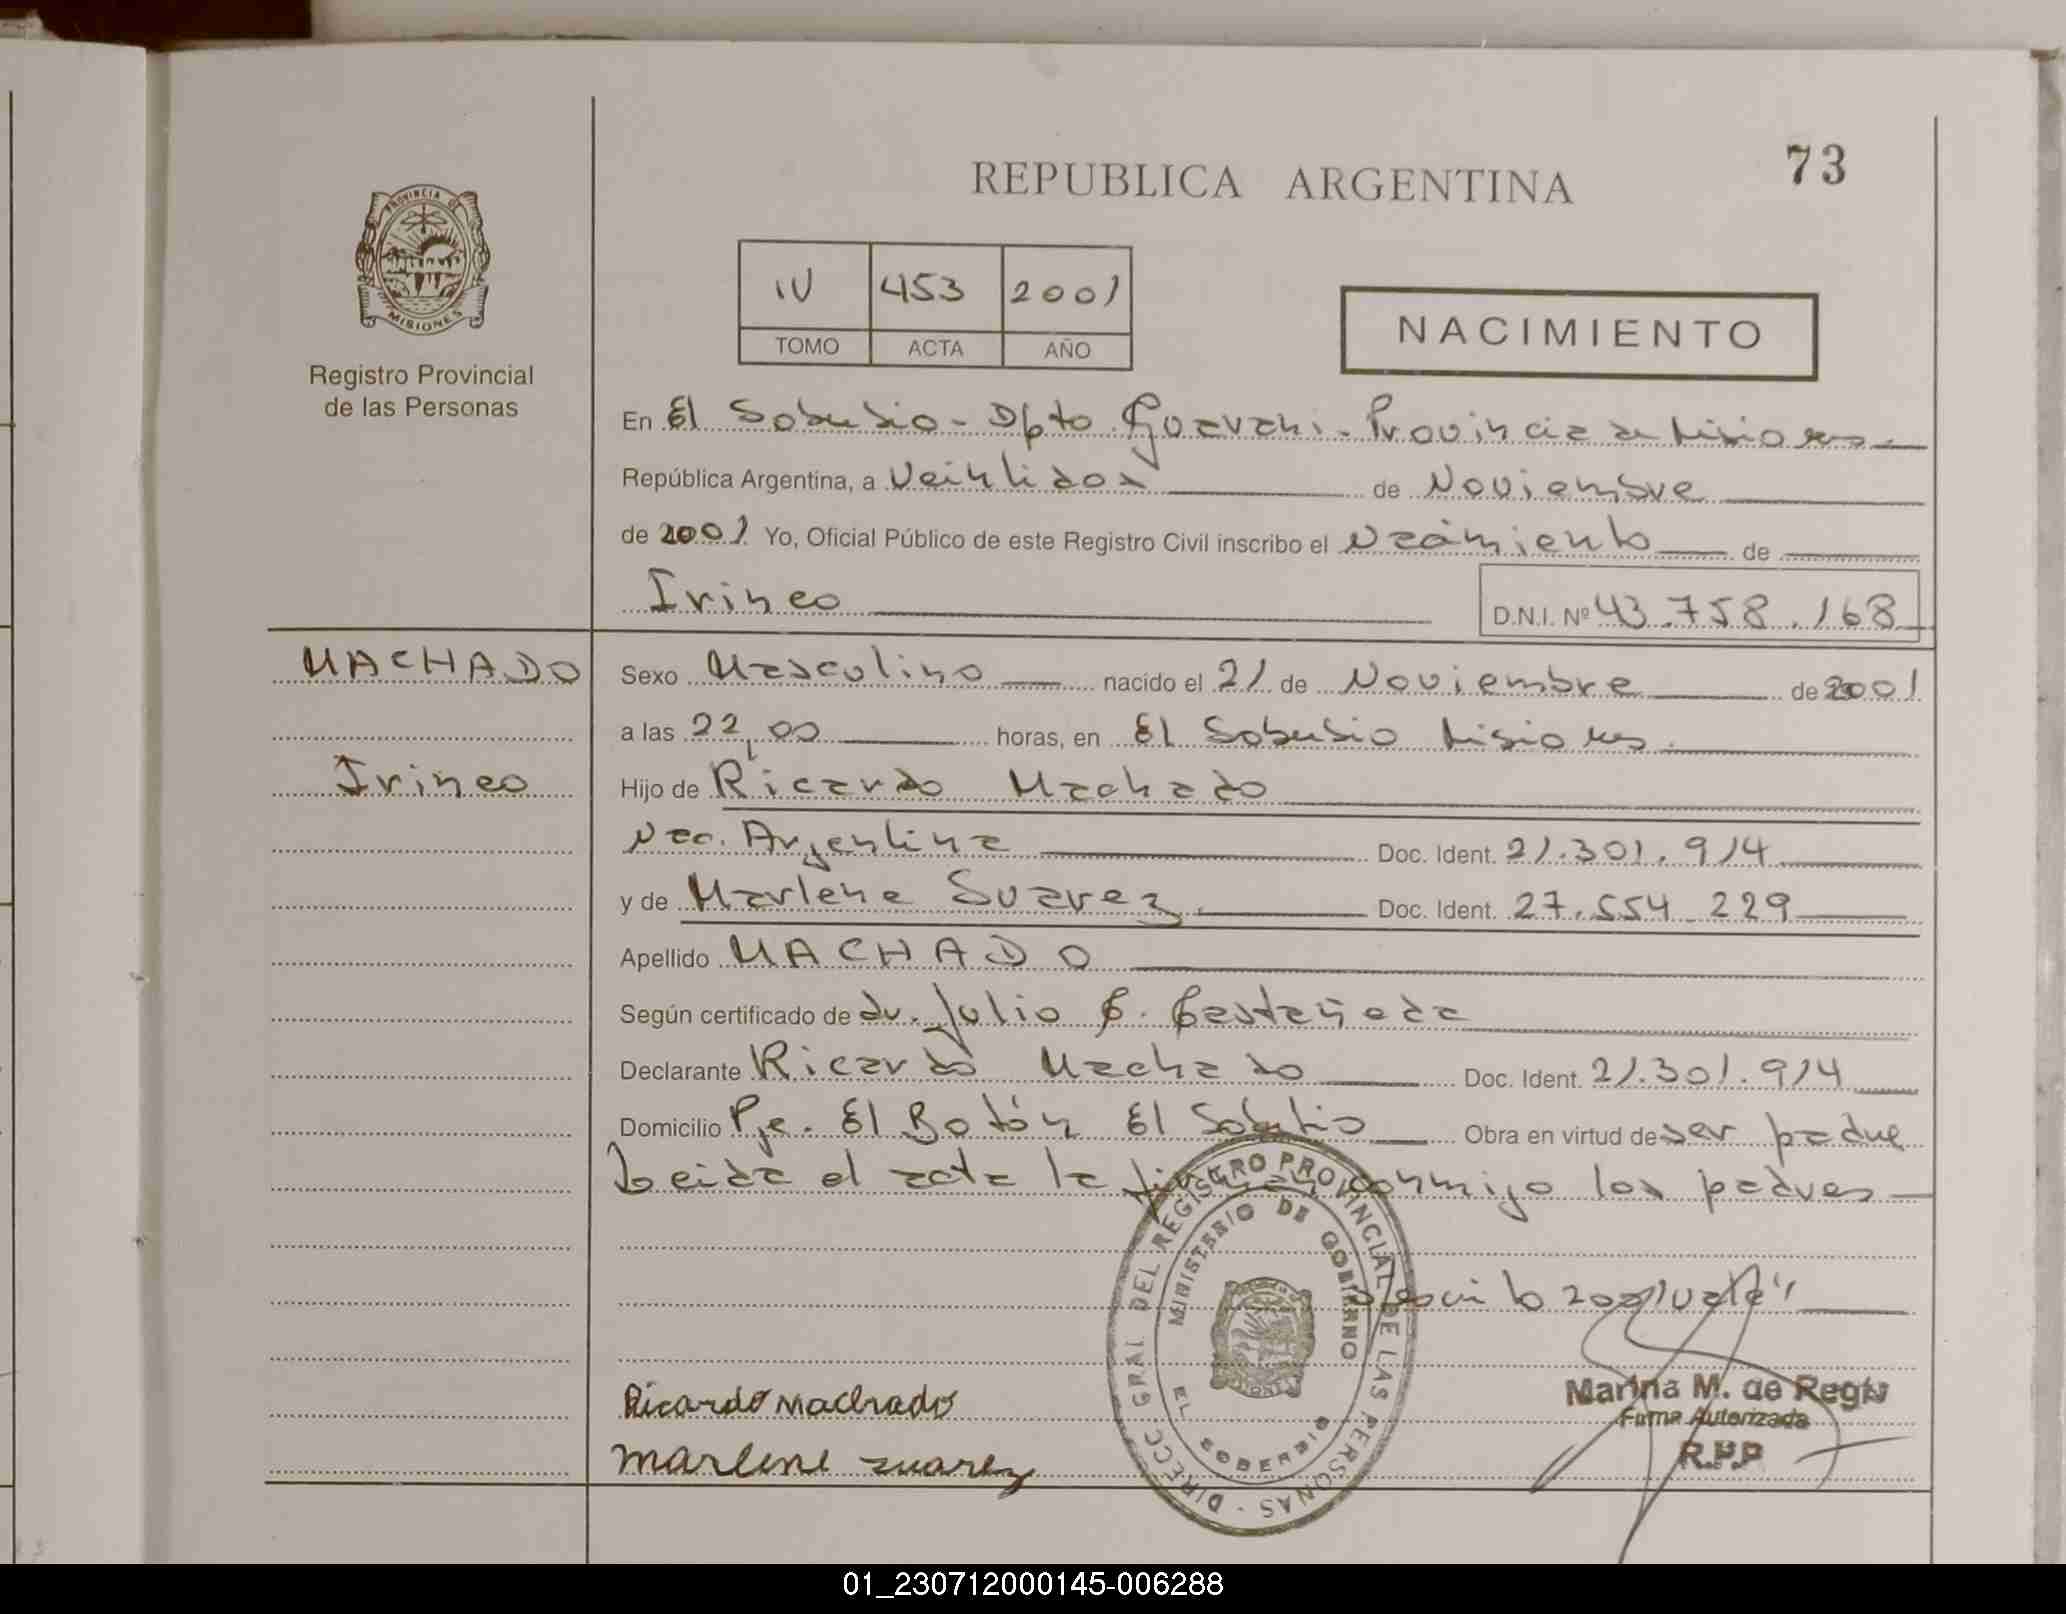 REPUBLICA ARGENTINA
73
PROVINCIA DE
MISIONES
Registro Provincial
de las Personas
IV 453 2001
TOMO ACTA AÑO
NACIMIENTO
En El Soberbio - Dpto Guarani - Provincia de Misiones
República Argentina, a Veintidos de Noviembre
de 2001 Yo, Oficial Público de este Registro Civil inscribo el Nacimiento de
Irineo D.N.I. Nº 43.758.168
MACHADO
Irineo
Sexo Masculino nacido el 21 de Noviembre de 2001
a las 22,00 horas, en El Soberbio Misiones.
Hijo de Ricardo Machado
Nac. Argentina Doc. Ident. 21.301.914
y de Marlene Suarez. Doc. Ident. 27.554.229
Apellido MACHADO
Según certificado de dr. Julio C. Castañeda
Declarante Ricardo Machado Doc. Ident. 21.301.914
Domicilio Pje. El Botón El Soberbio Obra en virtud de ser padre
Leida el acta la firman conmigo los padres
2001 vale"
Ricardo Machado
Marlene Suarez
DIRECC GRAL DEL REGISTRO PROVINCIAL DE LAS PERSONAS -
MINISTERIO DE GOBIERNO
EL SOBERBIO
Marina M. de Regis
Firma Autorizada
R.P.P
01_230712000145-006288